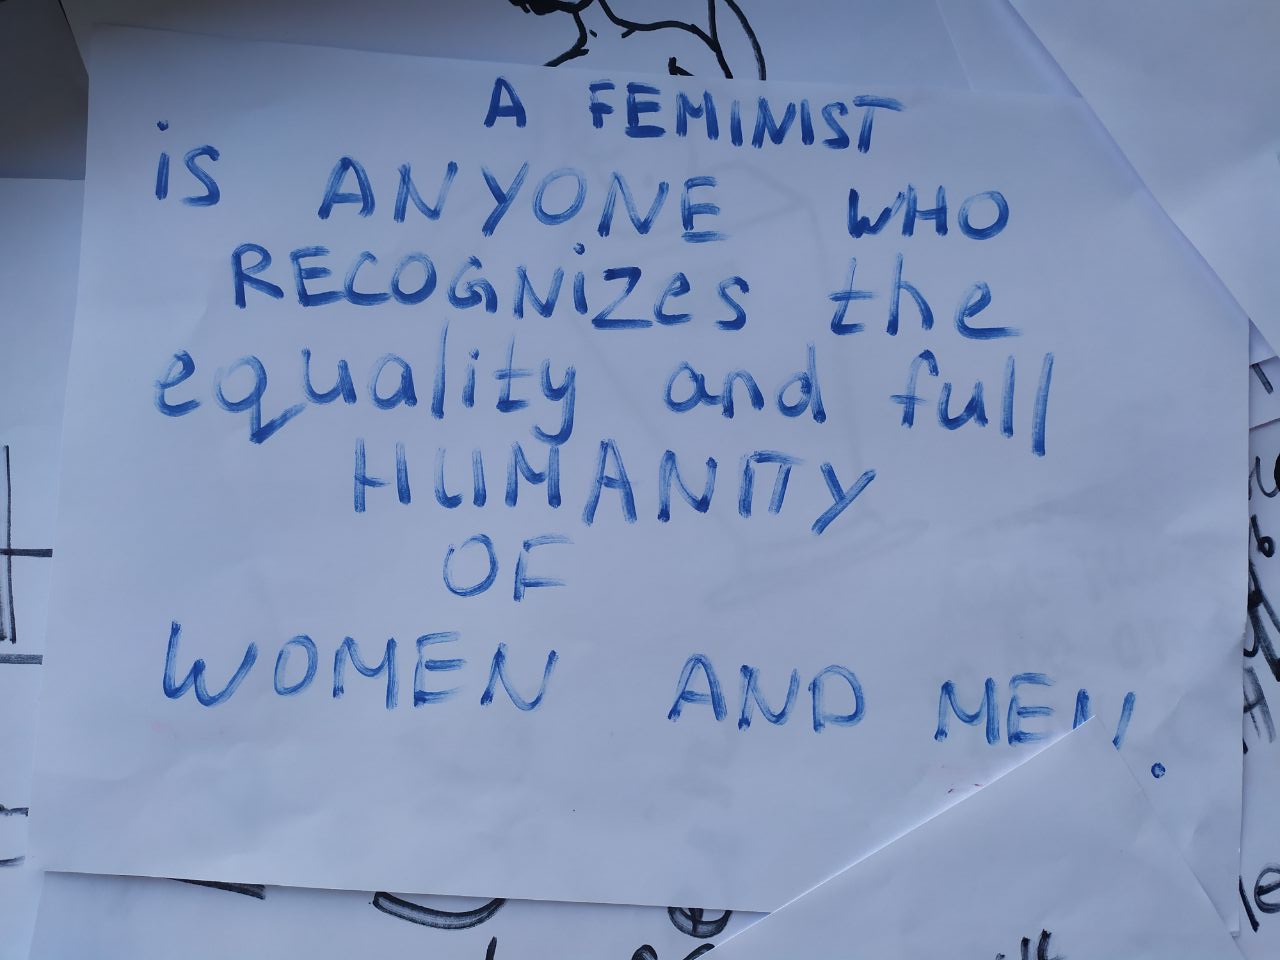 A FEMINIST
is ANYONE WHO
RECOGNiZes the
equality and full
HUMANITY
OF
WOMEN AND MEN.